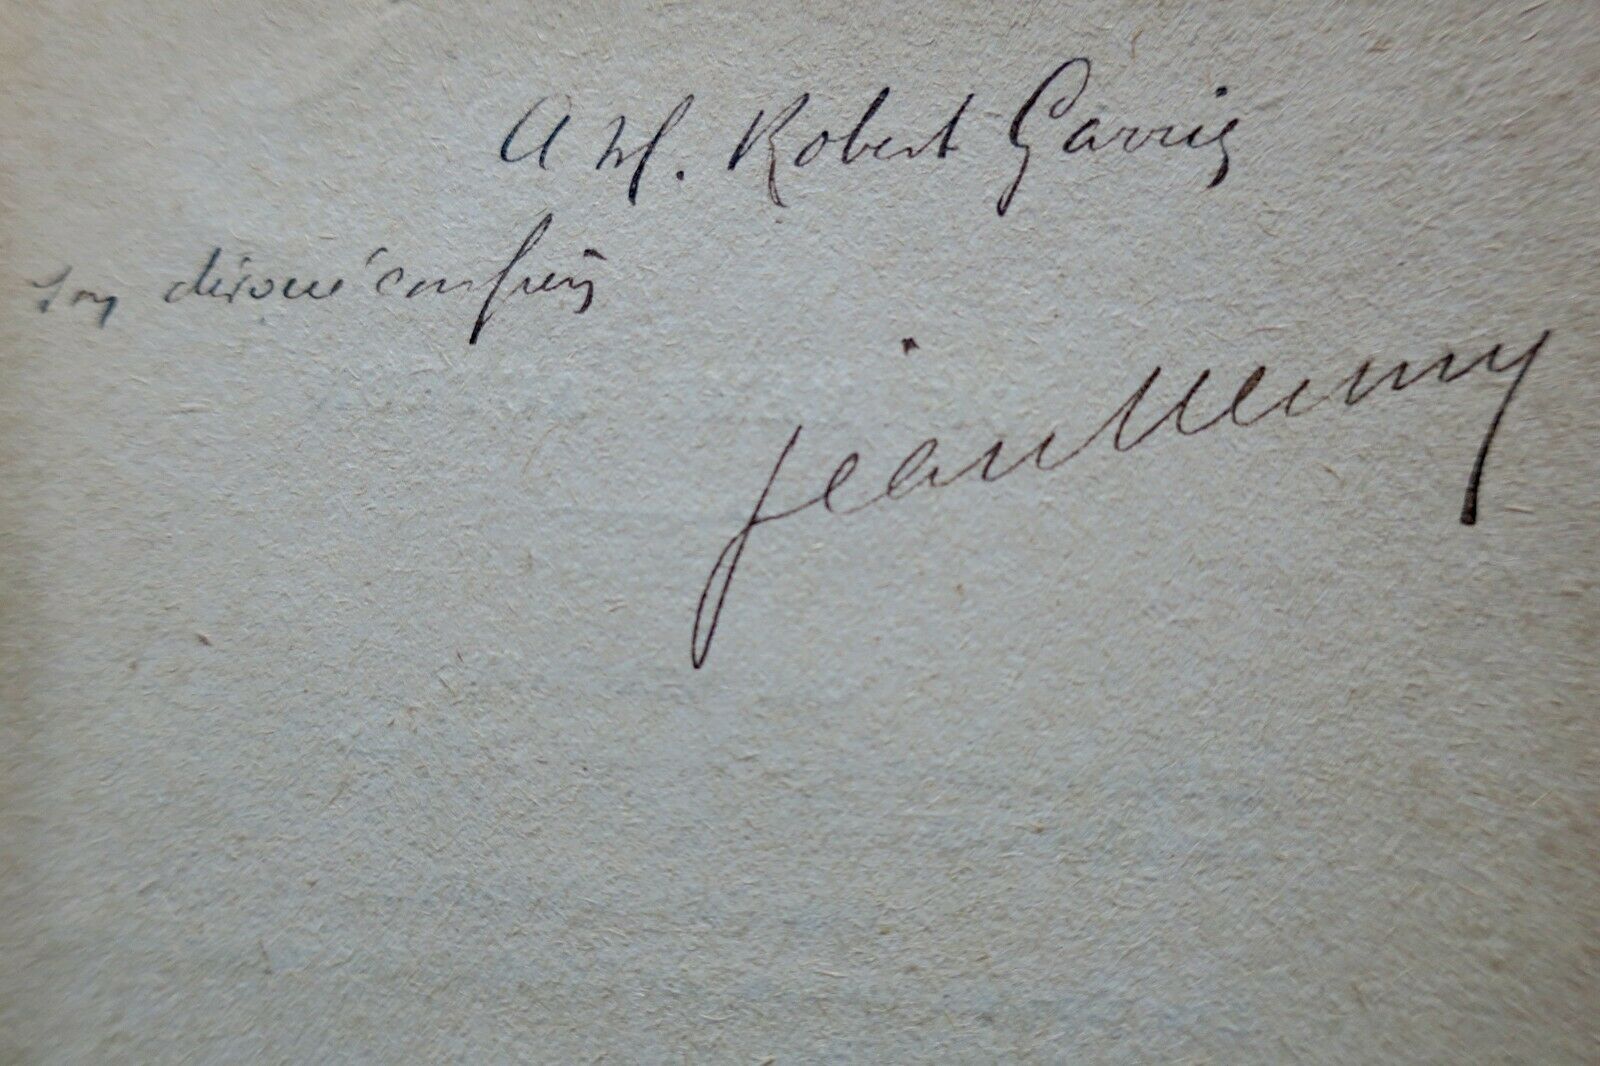 A M. Robert Garric
son dévoué confrère
Jean Mercury